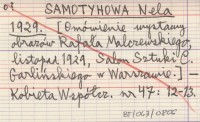 SAMOTYHOWA Nela
1929. [Omówienie wystawy
obrazów Rafała Malczewskiego,
listopad 1929, Salon Sztuki C.
Garlińskiego w Warszawie.] —
Kobieta Współcz. nr 47: 12-13.